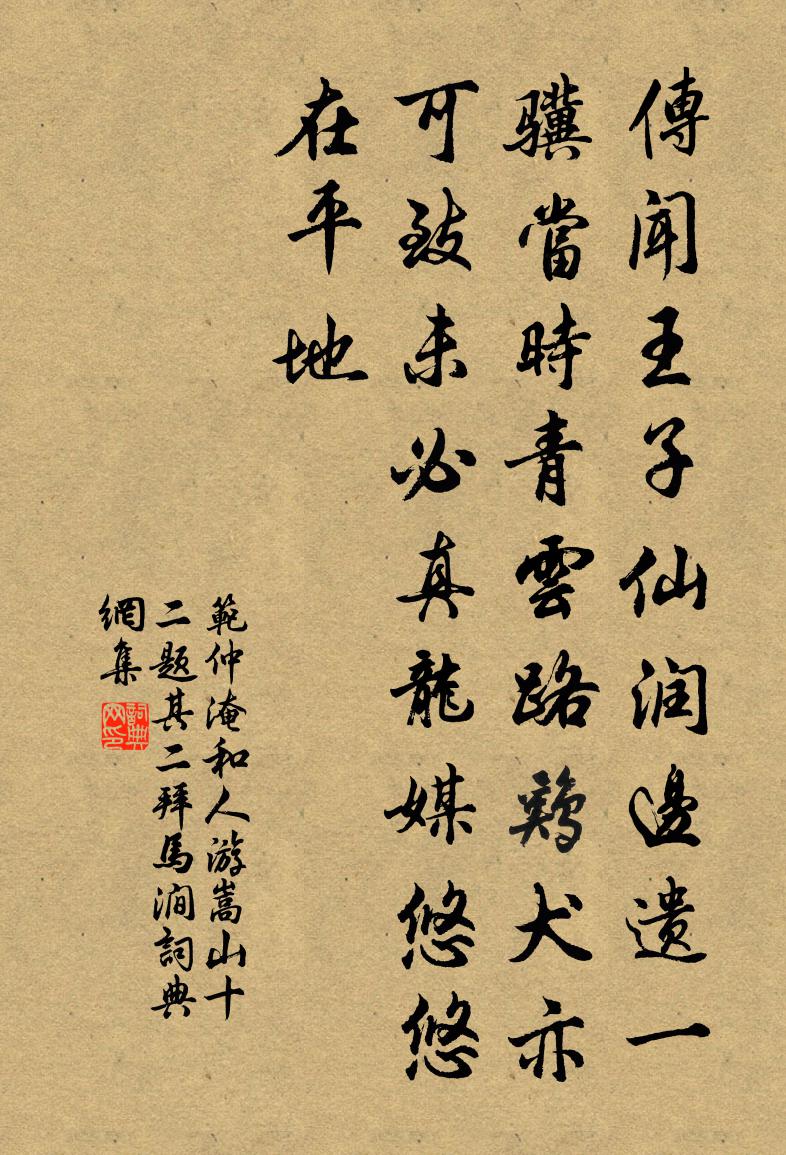 傳聞王子仙润邊遗一
骥當時青雲路鷄犬亦
可致未必真龍媒悠悠
在平地
範仲淹和人游嵩山十
二题其二拜馬澗詞典
網集
詞典
网印